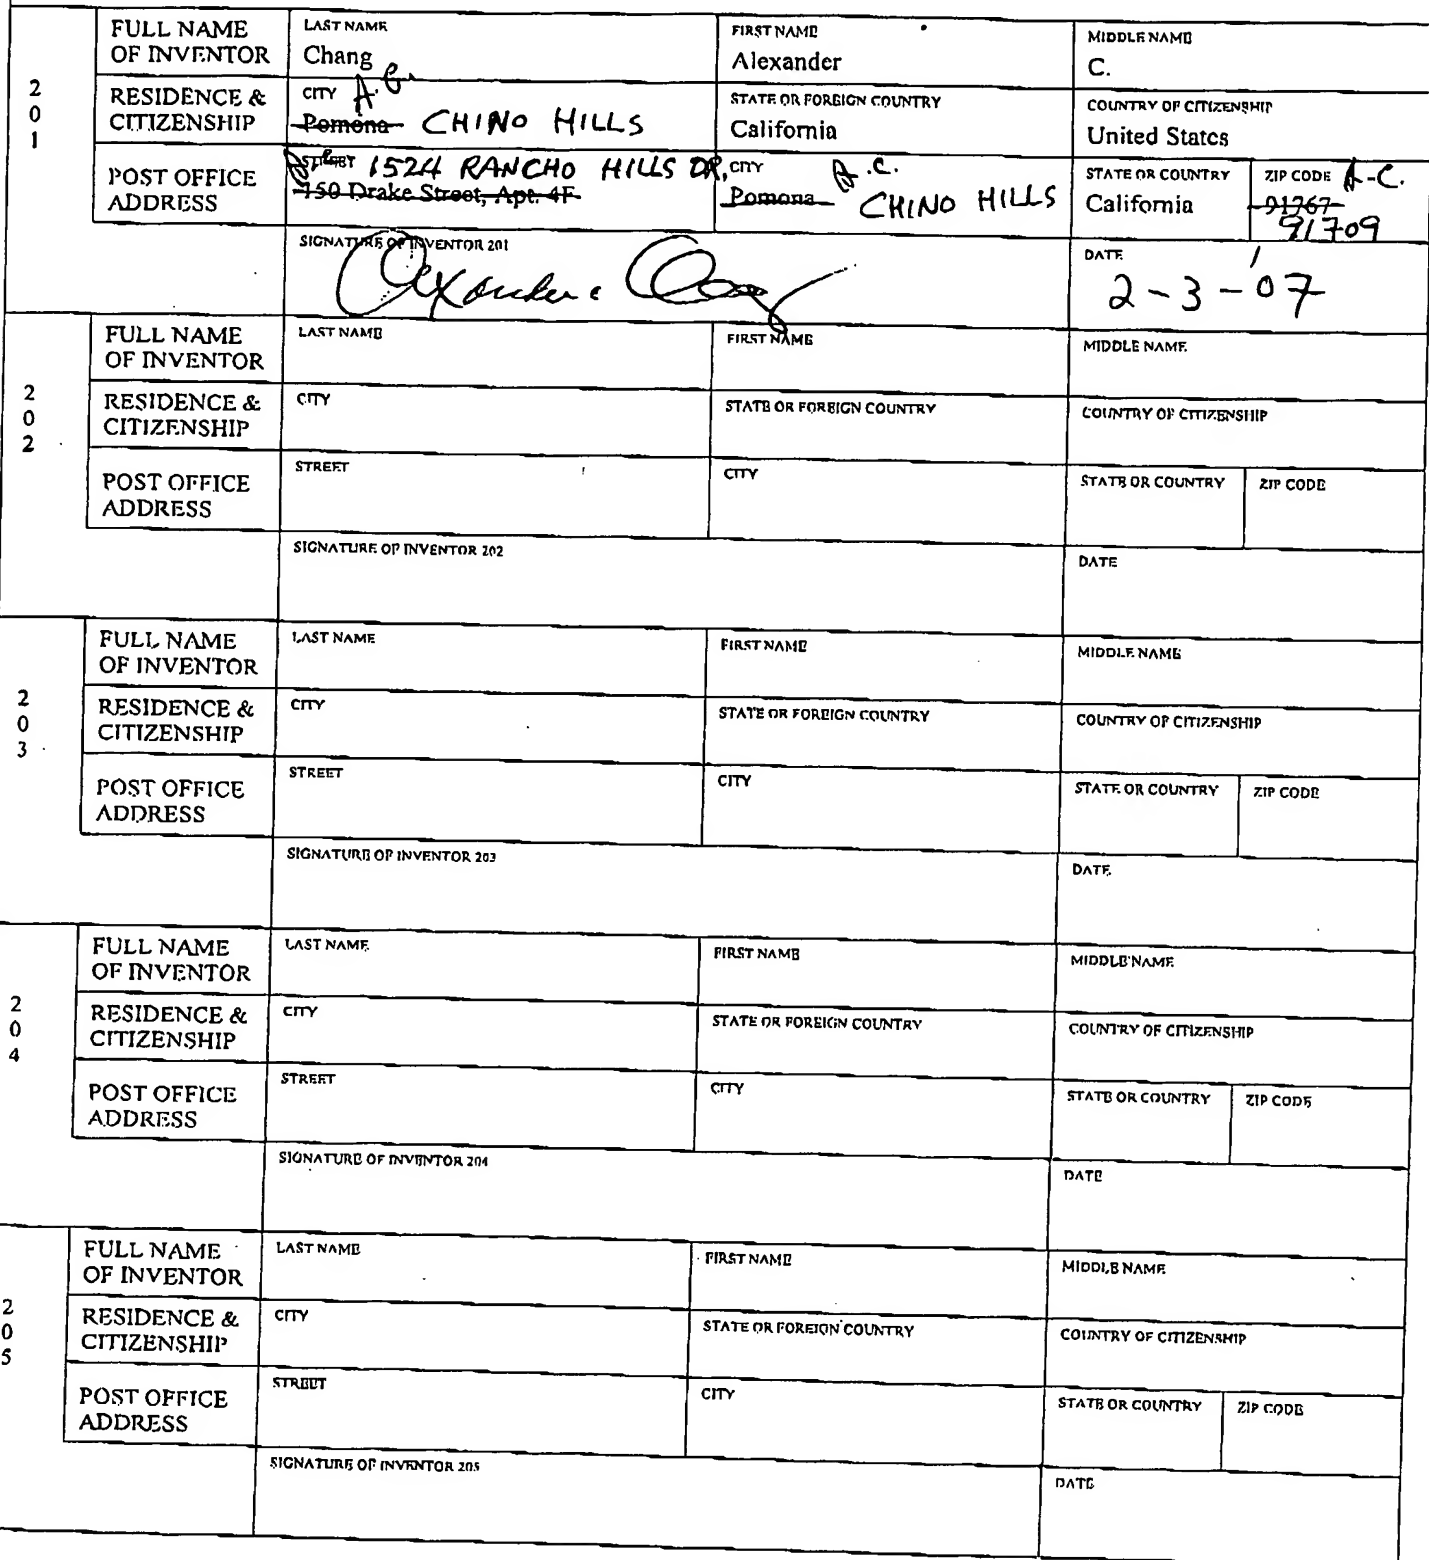 201
FULL NAME OF INVENTOR
LAST NAME
Chang
FIRST NAME
Alexander
MIDDLE NAME
C.
RESIDENCE & CITIZENSHIP
CITY A.C.
Pomona CHINO HILLS
STATE OR FOREIGN COUNTRY
California
COUNTRY OF CITIZENSHIP
United States
POST OFFICE ADDRESS
STREET 1524 RANCHO HILLS DR.
150 Drake Street, Apt. 4F
CITY A.C.
Pomona CHINO HILLS
STATE OR COUNTRY
California
ZIP CODE A.C.
91767
91709
SIGNATURE OF INVENTOR 201
Alexander C Chang
DATE
2-3-07
202
FULL NAME OF INVENTOR
LAST NAME
FIRST NAME
MIDDLE NAME
RESIDENCE & CITIZENSHIP
CITY
STATE OR FOREIGN COUNTRY
COUNTRY OF CITIZENSHIP
POST OFFICE ADDRESS
STREET
CITY
STATE OR COUNTRY
ZIP CODE
SIGNATURE OF INVENTOR 202
DATE
203
FULL NAME OF INVENTOR
LAST NAME
FIRST NAME
MIDDLE NAME
RESIDENCE & CITIZENSHIP
CITY
STATE OR FOREIGN COUNTRY
COUNTRY OF CITIZENSHIP
POST OFFICE ADDRESS
STREET
CITY
STATE OR COUNTRY
ZIP CODE
SIGNATURE OF INVENTOR 203
DATE
204
FULL NAME OF INVENTOR
LAST NAME
FIRST NAME
MIDDLE NAME
RESIDENCE & CITIZENSHIP
CITY
STATE OR FOREIGN COUNTRY
COUNTRY OF CITIZENSHIP
POST OFFICE ADDRESS
STREET
CITY
STATE OR COUNTRY
ZIP CODE
SIGNATURE OF INVENTOR 204
DATE
205
FULL NAME OF INVENTOR
LAST NAME
FIRST NAME
MIDDLE NAME
RESIDENCE & CITIZENSHIP
CITY
STATE OR FOREIGN COUNTRY
COUNTRY OF CITIZENSHIP
POST OFFICE ADDRESS
STREET
CITY
STATE OR COUNTRY
ZIP CODE
SIGNATURE OF INVENTOR 205
DATE